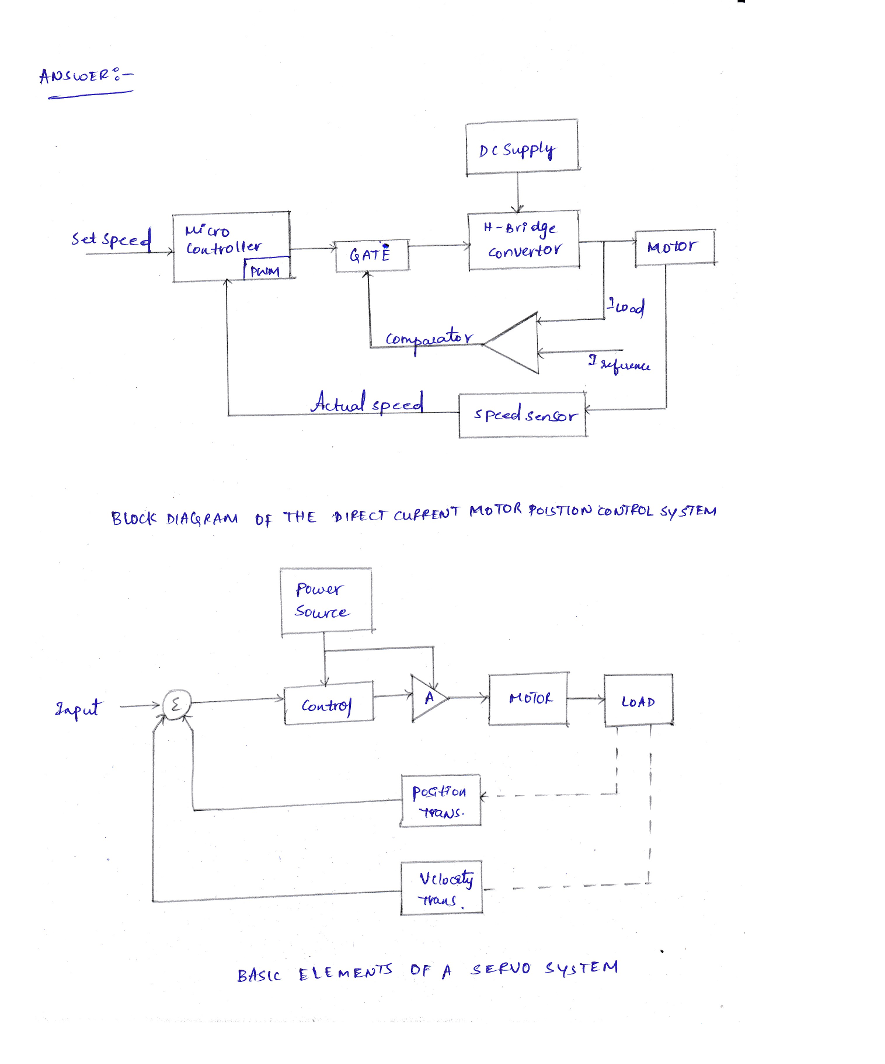 ANSWER:-
DC Supply
Set Speed
Micro
Controller
PWM
GATE
H-Bridge
Convertor
MOTOR
I Load
Comparator
I reference
Actual speed
Speed sensor
BLOCK DIAGRAM OF THE DIRECT CURRENT MOTOR POISTION CONTROL SYSTEM
Power
Source
Input
Σ
Control
A
MOTOR
LOAD
Position
Trans.
Velocity
Trans.
BASIC ELEMENTS OF A SERVO SYSTEM